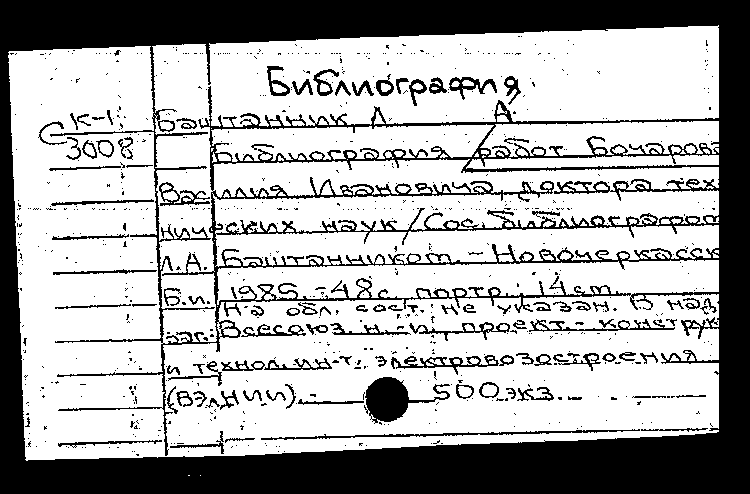 Библиография
К-1 Баштанник, Л. А.
С 3008
Библиография работ Бочарова
Василия Ивановича, доктора тех-
нических наук / Сос. библиографом
Л.А. Баштанником. - Новочеркасск
Б.и. 1985. - 48 с. портр.; 14 cm.
На обл. сост. не указан. В над-
заг.: Всесоюз. н.-и., проект.-конструк
и технол. ин-т. электровозостроения
(ВЭлНИИ). - 500 экз.